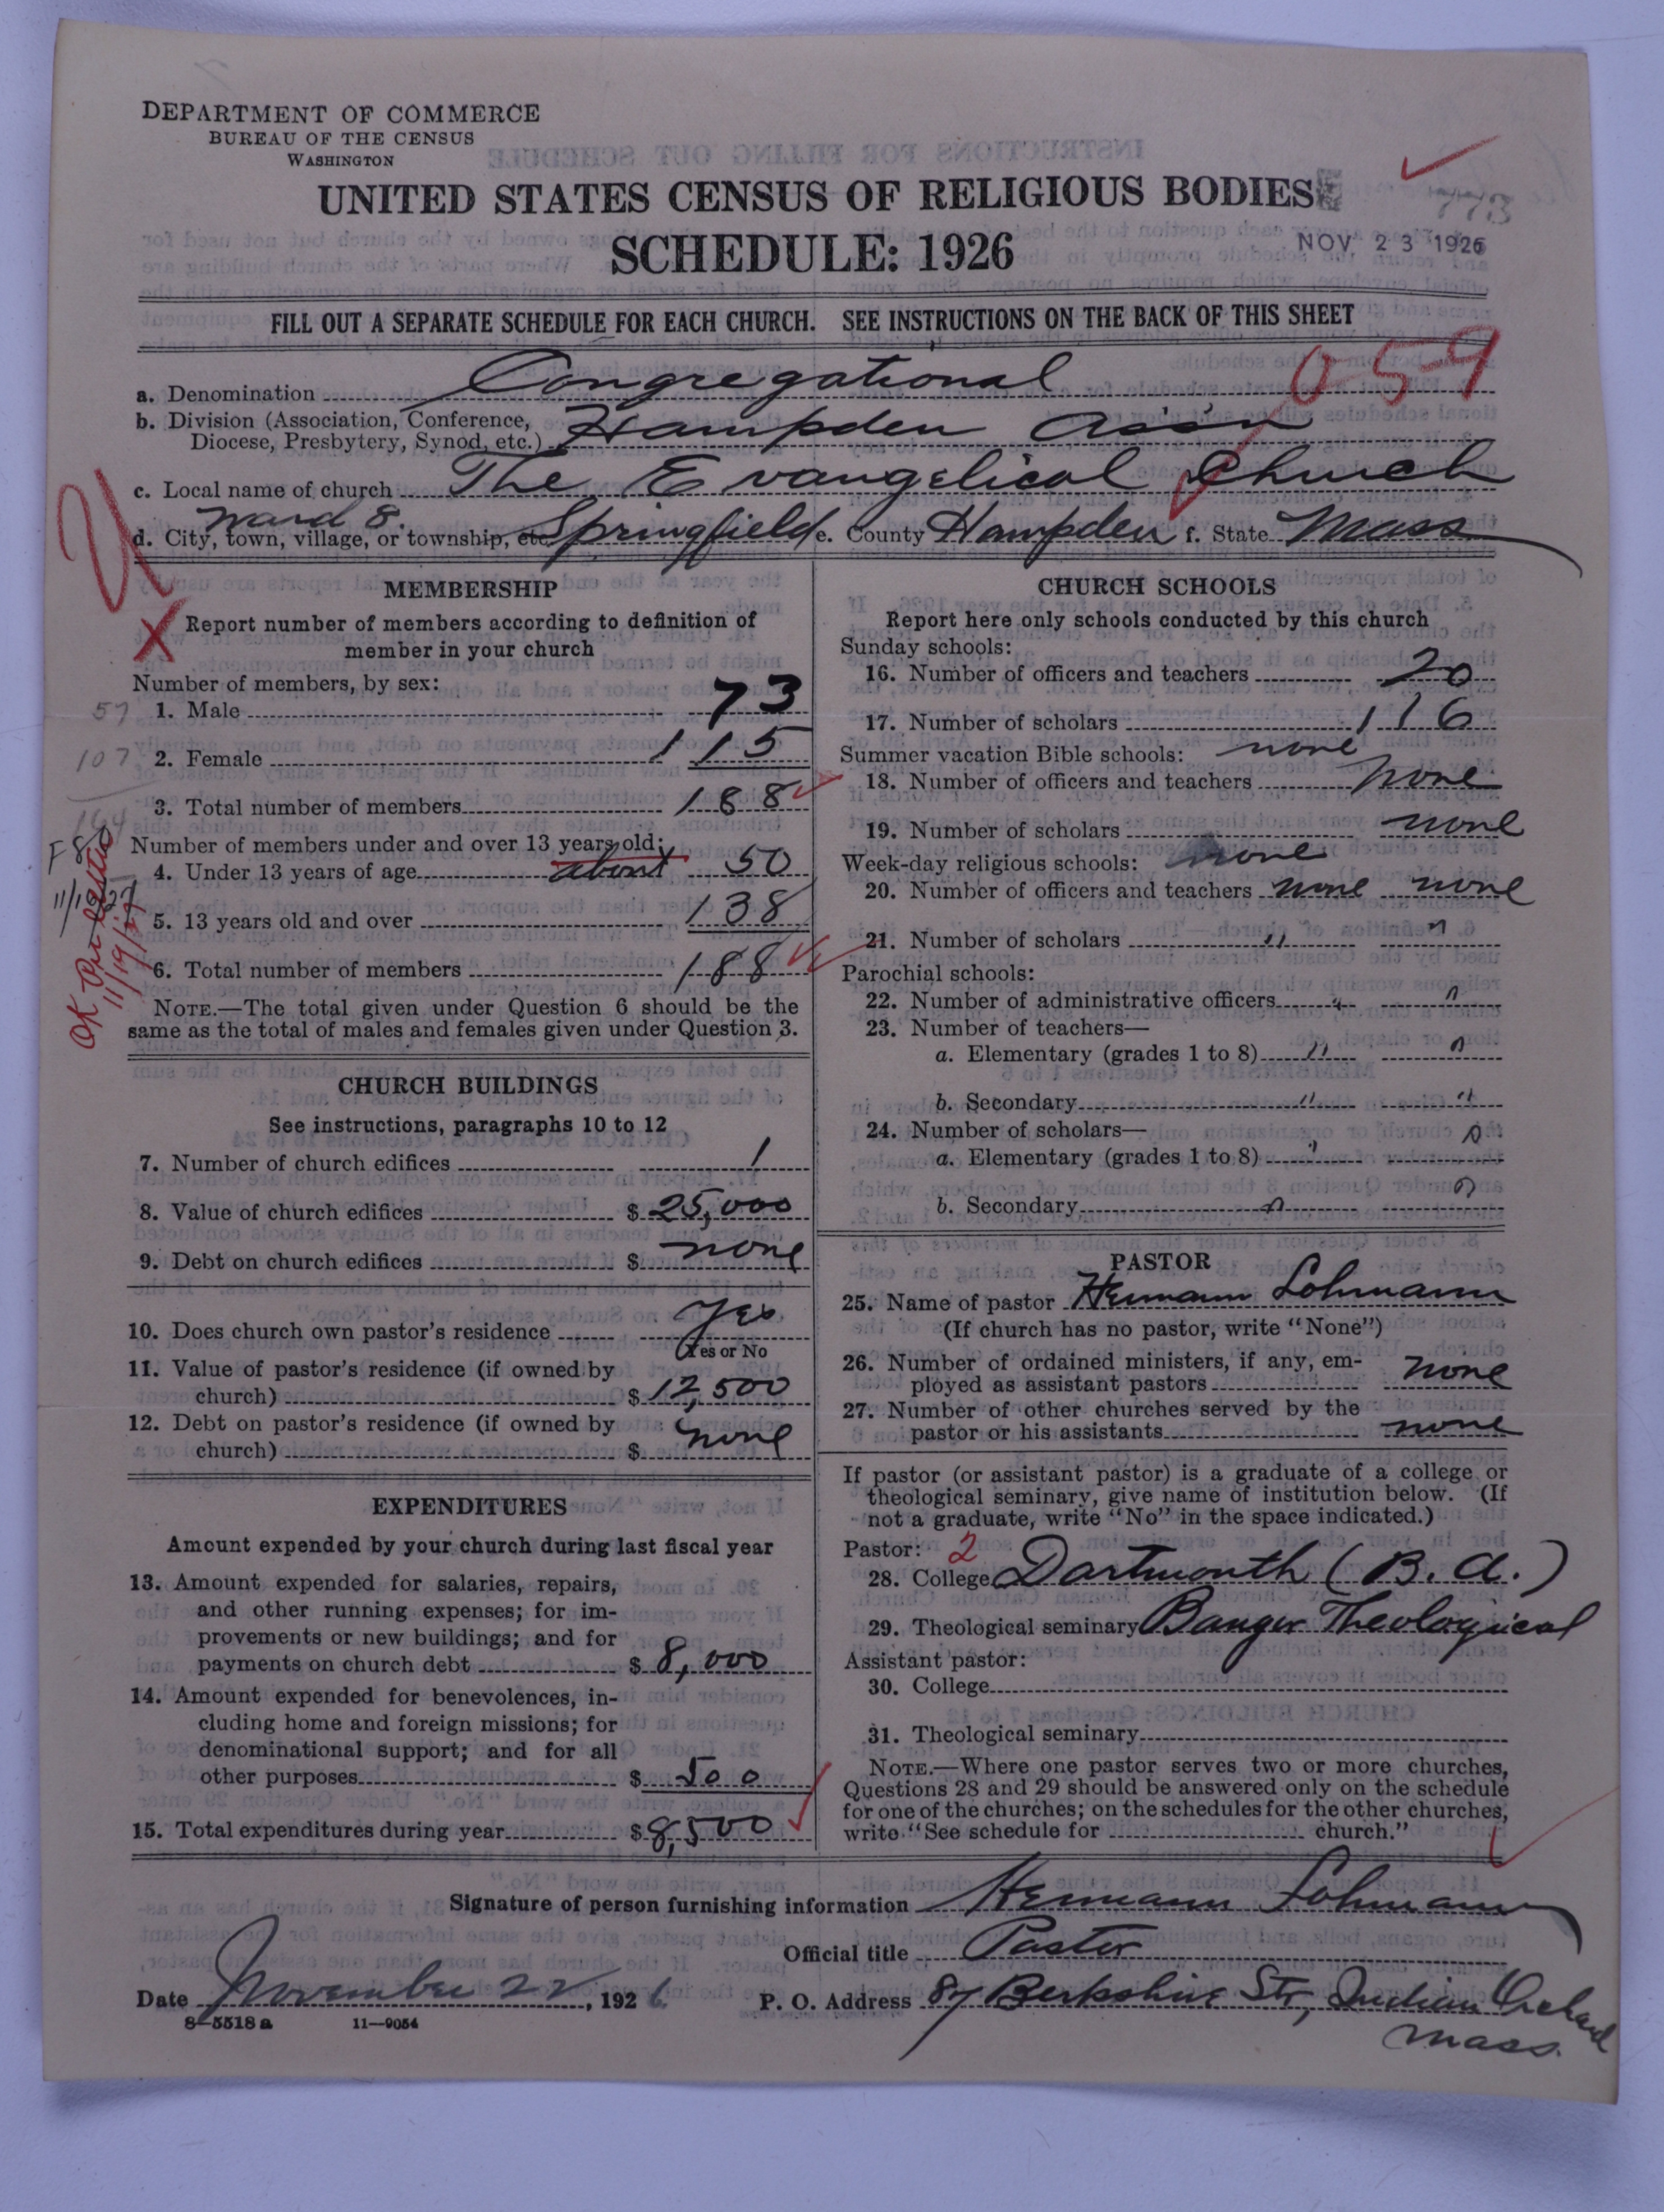 DEPARTMENT OF COMMERCE
BUREAU OF THE CENSUS
WASHINGTON
UNITED STATES CENSUS OF RELIGIOUS BODIES
773
SCHEDULE: 1926
NOV 23 1926
FILL OUT A SEPARATE SCHEDULE FOR EACH CHURCH. SEE INSTRUCTIONS ON THE BACK OF THIS SHEET
059
a. Denomination Congregational
b. Division (Association, Conference,
Diocese, Presbytery, Synod, etc.) Hampden Ass'n
c. Local name of church The Evangelical Church
Ward 8.
d. City, town, village, or township, etc. Springfield e. County Hampden f. State Mass
MEMBERSHIP
X Report number of members according to definition of
member in your church
Number of members, by sex:
57 1. Male 73
107 2. Female 115
164
3. Total number of members 188
Number of members under and over 13 years old:
4. Under 13 years of age about 50
5. 13 years old and over 138
6. Total number of members 188
OK Per letter
11/19/27
NOTE.—The total given under Question 6 should be the
same as the total of males and females given under Question 3.
CHURCH BUILDINGS
See instructions, paragraphs 10 to 12
7. Number of church edifices 1
8. Value of church edifices $ 25,000
9. Debt on church edifices $ none
10. Does church own pastor's residence Yes
Yes or No
11. Value of pastor's residence (if owned by
church) $ 12,500
12. Debt on pastor's residence (if owned by
church) $ none
EXPENDITURES
Amount expended by your church during last fiscal year
13. Amount expended for salaries, repairs,
and other running expenses; for im-
provements or new buildings; and for
payments on church debt $ 8,000
14. Amount expended for benevolences, in-
cluding home and foreign missions; for
denominational support; and for all
other purposes $ 500
15. Total expenditures during year $ 8,500
CHURCH SCHOOLS
Report here only schools conducted by this church
Sunday schools:
16. Number of officers and teachers 20
17. Number of scholars 116
Summer vacation Bible schools: none
18. Number of officers and teachers none
19. Number of scholars none
Week-day religious schools: none
20. Number of officers and teachers none none
21. Number of scholars " "
Parochial schools:
22. Number of administrative officers " "
23. Number of teachers—
a. Elementary (grades 1 to 8) " "
b. Secondary " "
24. Number of scholars—
a. Elementary (grades 1 to 8) " "
b. Secondary " "
PASTOR
25. Name of pastor Hermann Lohmann
(If church has no pastor, write "None")
26. Number of ordained ministers, if any, em-
ployed as assistant pastors none
27. Number of other churches served by the
pastor or his assistants none
If pastor (or assistant pastor) is a graduate of a college or
theological seminary, give name of institution below. (If
not a graduate, write "No" in the space indicated.)
Pastor: 2
28. College Dartmouth (B.A.)
29. Theological seminary Bangor Theological
Assistant pastor:
30. College
31. Theological seminary
NOTE.—Where one pastor serves two or more churches,
Questions 28 and 29 should be answered only on the schedule
for one of the churches; on the schedules for the other churches,
write "See schedule for church."
Signature of person furnishing information Hermann Lohmann
Official title Pastor
Date November 22, 1926
P. O. Address 87 Berkshire Str, Indian Orchard
Mass.
8-5518a 11-9054